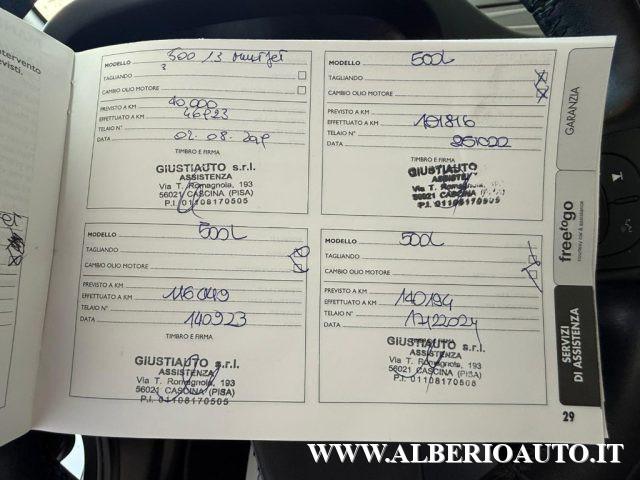 ntervento
evisti.
MODELLO 500 1.3 multijet
TAGLIANDO
CAMBIO OLIO MOTORE
PREVISTO A KM 40,000
EFFETTUATO A KM 46923
TELAIO N°
DATA 02.08.2019
TIMBRO E FIRMA
GIUSTIAUTO s.r.l.
ASSISTENZA
Via T. Romagnola, 193
56021 CASCINA (PISA)
P.I. 01108170505
MODELLO 500L
TAGLIANDO
CAMBIO OLIO MOTORE
PREVISTO A KM
EFFETTUATO A KM 101816
TELAIO N°
DATA 251022
TIMBRO E FIRMA
GIUSTIAUTO
ASSISTEN
Via T. Romagnola, 193
56021 CASCINA (PISA)
P.I. 01108170505
MODELLO 500L
TAGLIANDO
CAMBIO OLIO MOTORE
PREVISTO A KM
EFFETTUATO A KM 116049
TELAIO N°
DATA 140923
TIMBRO E FIRMA
GIUSTIAUTO s.r.l.
ASSISTENZA
Via T. Romagnola, 193
56021 CASCINA (PISA)
P.I. 01108170505
MODELLO 500L
TAGLIANDO
CAMBIO OLIO MOTORE
PREVISTO A KM
EFFETTUATO A KM 140194
TELAIO N°
DATA 17122024
TIMBRO E FIRMA
GIUSTIAUTO s.r.l.
ASSISTENZA
Via T. Romagnola, 193
56021 CASCINA (PISA)
P.I. 01108170505
GARANZIA
freetogo
courtesy car & assistance
SERVIZI
DI ASSISTENZA
29
WWW.ALBERIOAUTO.IT